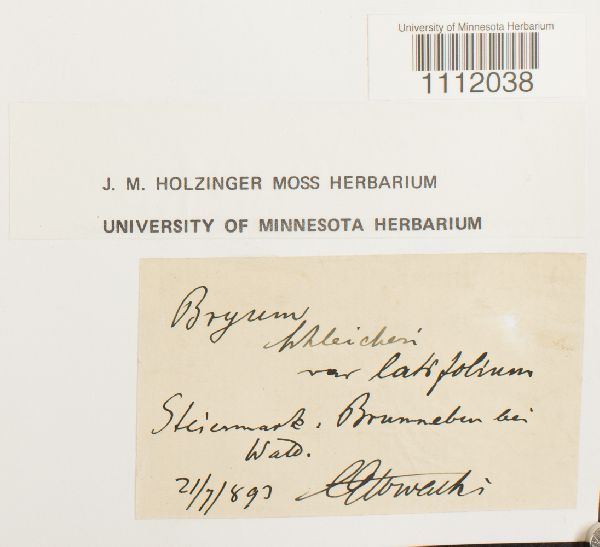 University of Minnesota Herbarium
1112038
J. M. HOLZINGER MOSS HERBARIUM
UNIVERSITY OF MINNESOTA HERBARIUM
Bryum
Schleicheri
var latifolium
Steiermark. Brunneben bei
Wald.
21/7/893